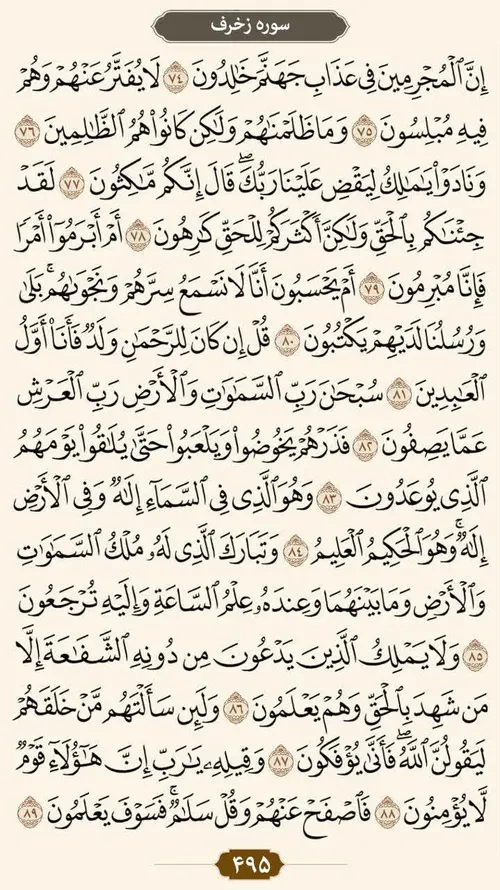 سوره زخرف
إِنَّ ٱلْمُجْرِمِينَ فِي عَذَابِ جَهَنَّمَ خَالِدُونَ ٧٤ لَا يُفَتَّرُ عَنْهُمْ وَهُمْ
فِيهِ مُبْلِسُونَ ٧٥ وَمَا ظَلَمْنَاهُمْ وَلَٰكِن كَانُوا۟ هُمُ ٱلظَّالِمِينَ ٧٦
وَنَادَوْا۟ يَا مَالِكُ لِيَقْضِ عَلَيْنَا رَبُّكَ ۖ قَالَ إِنَّكُم مَّاكِثُونَ ٧٧ لَقَدْ
جِئْنَاكُم بِٱلْحَقِّ وَلَٰكِنَّ أَكْثَرَكُمْ لِلْحَقِّ كَارِهُونَ ٧٨ أَمْ أَبْرَمُوٓا۟ أَمْرًا
فَإِنَّا مُبْرِمُونَ ٧٩ أَمْ يَحْسَبُونَ أَنَّا لَا نَسْمَعُ سِرَّهُمْ وَنَجْوَاهُم ۚ بَلَىٰ
وَرُسُلُنَا لَدَيْهِمْ يَكْتُبُونَ ٨٠ قُلْ إِن كَانَ لِلرَّحْمَٰنِ وَلَدٌ فَأَنَا۠ أَوَّلُ
ٱلْعَابِدِينَ ٨١ سُبْحَانَ رَبِّ ٱلسَّمَاوَاتِ وَٱلْأَرْضِ رَبِّ ٱلْعَرْشِ
عَمَّا يَصِفُونَ ٨٢ فَذَرْهُمْ يَخُوضُوا۟ وَيَلْعَبُوا۟ حَتَّىٰ يُلَاقُوا۟ يَوْمَهُمُ
ٱلَّذِي يُوعَدُونَ ٨٣ وَهُوَ ٱلَّذِي فِي ٱلسَّمَآءِ إِلَٰهٌ وَفِي ٱلْأَرْضِ
إِلَٰهٌ ۚ وَهُوَ ٱلْحَكِيمُ ٱلْعَلِيمُ ٨٤ وَتَبَارَكَ ٱلَّذِي لَهُۥ مُلْكُ ٱلسَّمَاوَاتِ
وَٱلْأَرْضِ وَمَا بَيْنَهُمَا وَعِندَهُۥ عِلْمُ ٱلسَّاعَةِ وَإِلَيْهِ تُرْجَعُونَ
٨٥ وَلَا يَمْلِكُ ٱلَّذِينَ يَدْعُونَ مِن دُونِهِ ٱلشَّفَاعَةَ إِلَّا
مَن شَهِدَ بِٱلْحَقِّ وَهُمْ يَعْلَمُونَ ٨٦ وَلَئِن سَأَلْتَهُم مَّنْ خَلَقَهُمْ
لَيَقُولُنَّ ٱللَّهُ ۖ فَأَنَّىٰ يُؤْفَكُونَ ٨٧ وَقِيلِهِۦ يَا رَبِّ إِنَّ هَٰٓؤُلَآءِ قَوْمٌ
لَّا يُؤْمِنُونَ ٨٨ فَٱصْفَحْ عَنْهُمْ وَقُلْ سَلَامٌ ۚ فَسَوْفَ يَعْلَمُونَ ٨٩
۴۹۵